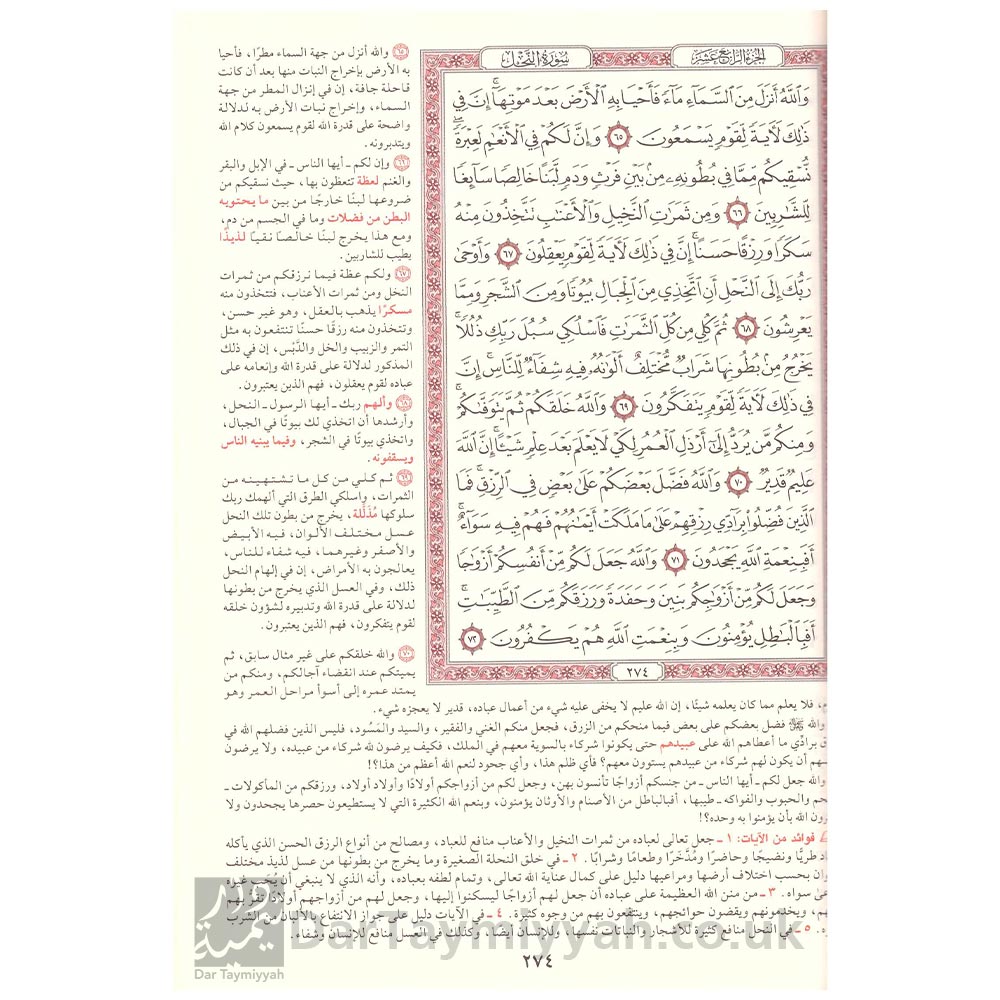 الجزء الرابع عشر
سورة النحل
وَاللَّهُ أَنزَلَ مِنَ السَّمَاءِ مَاءً فَأَحْيَا بِهِ الْأَرْضَ بَعْدَ مَوْتِهَا ۚ إِنَّ فِي
ذَٰلِكَ لَآيَةً لِّقَوْمٍ يَسْمَعُونَ ٦٥ وَإِنَّ لَكُمْ فِي الْأَنْعَامِ لَعِبْرَةً ۖ
نُّسْقِيكُم مِّمَّا فِي بُطُونِهِ مِن بَيْنِ فَرْثٍ وَدَمٍ لَّبَنًا خَالِصًا سَائِغًا
لِّلشَّارِبِينَ ٦٦ وَمِن ثَمَرَاتِ النَّخِيلِ وَالْأَعْنَابِ تَتَّخِذُونَ مِنْهُ
سَكَرًا وَرِزْقًا حَسَنًا ۗ إِنَّ فِي ذَٰلِكَ لَآيَةً لِّقَوْمٍ يَعْقِلُونَ ٦٧ وَأَوْحَىٰ
رَبُّكَ إِلَى النَّحْلِ أَنِ اتَّخِذِي مِنَ الْجِبَالِ بُيُوتًا وَمِنَ الشَّجَرِ وَمِمَّا
يَعْرِشُونَ ٦٨ ثُمَّ كُلِي مِن كُلِّ الثَّمَرَاتِ فَاسْلُكِي سُبُلَ رَبِّكِ ذُلُلًا ۚ
يَخْرُجُ مِن بُطُونِهَا شَرَابٌ مُّخْتَلِفٌ أَلْوَانُهُ فِيهِ شِفَاءٌ لِّلنَّاسِ ۗ إِنَّ
فِي ذَٰلِكَ لَآيَةً لِّقَوْمٍ يَتَفَكَّرُونَ ٦٩ وَاللَّهُ خَلَقَكُمْ ثُمَّ يَتَوَفَّاكُمْ ۚ
وَمِنكُم مَّن يُرَدُّ إِلَىٰ أَرْذَلِ الْعُمُرِ لِكَيْ لَا يَعْلَمَ بَعْدَ عِلْمٍ شَيْئًا ۚ إِنَّ اللَّهَ
عَلِيمٌ قَدِيرٌ ٧٠ وَاللَّهُ فَضَّلَ بَعْضَكُمْ عَلَىٰ بَعْضٍ فِي الرِّزْقِ ۚ فَمَا
الَّذِينَ فُضِّلُوا بِرَادِّي رِزْقِهِمْ عَلَىٰ مَا مَلَكَتْ أَيْمَانُهُمْ فَهُمْ فِيهِ سَوَاءٌ ۚ
أَفَبِنِعْمَةِ اللَّهِ يَجْحَدُونَ ٧١ وَاللَّهُ جَعَلَ لَكُم مِّنْ أَنفُسِكُمْ أَزْوَاجًا
وَجَعَلَ لَكُم مِّنْ أَزْوَاجِكُم بَنِينَ وَحَفَدَةً وَرَزَقَكُم مِّنَ الطَّيِّبَاتِ ۚ
أَفَبِالْبَاطِلِ يُؤْمِنُونَ وَبِنِعْمَتِ اللَّهِ هُمْ يَكْفُرُونَ ٧٢
٢٧٤
٦٥ والله أنزل من جهة السماء مطرًا، فأحيا
به الأرض بإخراج النبات منها بعد أن كانت
قاحلة جافة، إن في إنزال المطر من جهة
السماء، وإخراج نبات الأرض به لدلالة
واضحة على قدرة الله لقوم يسمعون كلام الله
ويتدبرونه.
٦٦ وإن لكم ـ أيها الناس ـ في الإبل والبقر
والغنم لعظة تتعظون بها، حيث نسقيكم من
ضروعها لبنًا خارجًا من بين ما يحتويه
البطن من فضلات وما في الجسم من دم،
ومع هذا يخرج لبنًا خالصًا نقيًا لذيذًا
يطيب للشاربين.
٦٧ ولكم عظة فيما نرزقكم من ثمرات
النخل ومن ثمرات الأعناب، فتتخذون منه
مسكرًا يذهب بالعقل، وهو غير حسن،
وتتخذون منه رزقًا حسنًا تنتفعون به مثل
التمر والزبيب والخل والدِّبْس، إن في ذلك
المذكور لدلالة على قدرة الله وإنعامه على
عباده لقوم يعقلون، فهم الذين يعتبرون.
٦٨ وألهم ربك ـ أيها الرسول ـ النحل،
وأرشدها أن اتخذي لك بيوتًا في الجبال،
واتخذي بيوتًا في الشجر، وفيما يبنيه الناس
ويسقفونه.
٦٩ ثم كلي من كل ما تشتهينه من
الثمرات، واسلكي الطرق التي ألهمك ربك
سلوكها مُذلَّلة، يخرج من بطون تلك النحل
عسل مختلف الألوان، فيه الأبيض
والأصفر وغيرهما، فيه شفاء للناس،
يعالجون به الأمراض، إن في إلهام النحل
ذلك، وفي العسل الذي يخرج من بطونها
لدلالة على قدرة الله وتدبيره لشؤون خلقه
لقوم يتفكرون، فهم الذين يعتبرون.
٧٠ والله خلقكم على غير مثال سابق، ثم
يميتكم عند انقضاء آجالكم، ومنكم من
يمتد عمره إلى أسوأ مراحل العمر وهو
فلا يعلم مما كان يعلمه شيئًا، إن الله عليم لا يخفى عليه شيء من أعمال عباده، قدير لا يعجزه شيء.
والله ﷻ فضل بعضكم على بعض فيما منحكم من الرزق، فجعل منكم الغني والفقير، والسيد والمَسُود، فليس الذين فضلهم الله في
برادِّي ما أعطاهم الله على عبيدهم حتى يكونوا شركاء بالسوية معهم في الملك، فكيف يرضون لله شركاء من عبيده، ولا يرضون
أن يكون لهم شركاء من عبيدهم يستوون معهم؟ فأي ظلم هذا، وأي جحود لنعم الله أعظم من هذا؟!
والله جعل لكم ـ أيها الناس ـ من جنسكم أزواجًا تأنسون بهن، وجعل لكم من أزواجكم أولادًا وأولاد أولاد، ورزقكم من المأكولات ـ
والحبوب والفواكه ـ طيبها، أفبالباطل من الأصنام والأوثان يؤمنون، وبنعم الله الكثيرة التي لا يستطيعون حصرها يجحدون ولا
الله بأن يؤمنوا به وحده؟!
فوائد من الآيات: ١ ـ جعل تعالى لعباده من ثمرات النخيل والأعناب منافع للعباد، ومصالح من أنواع الرزق الحسن الذي يأكله
طريًّا ونضيجًا وحاضرًا ومُدَّخرًا وطعامًا وشرابًا. ٢ ـ في خلق النحلة الصغيرة وما يخرج من بطونها من عسل لذيذ مختلف
بحسب اختلاف أرضها ومراعيها دليل على كمال عناية الله تعالى، وتمام لطفه بعباده، وأنه الذي لا ينبغي أن يُحَب غيره
سواه. ٣ ـ من منن الله العظيمة على عباده أن جعل لهم أزواجًا ليسكنوا إليها، وجعل لهم من أزواجهم أولادًا تقرُّ بهم
ويخدمونهم ويقضون حوائجهم، وينتفعون بهم من وجوه كثيرة. ٤ ـ في الآيات دليل على جواز الانتفاع بالألبان من الشرب
٥ ـ في النحل منافع كثيرة للأشجار والنباتات نفسها، وللإنسان أيضًا، وكذلك في العسل منافع للإنسان وشفاء.
٢٧٤
Dar Taymiyyah
DarTaymiyyah.co.uk